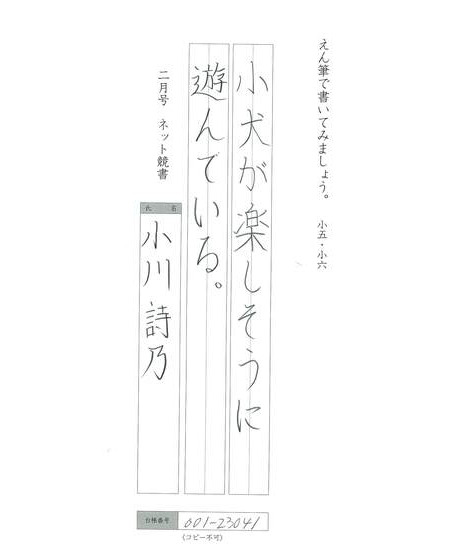 えん筆で書いてみましょう。 小五・小六
小犬が楽しそうに
遊んでいる。
二月号 ネット競書
氏名
小川詩乃
台帳番号 001-23041
(コピー不可)